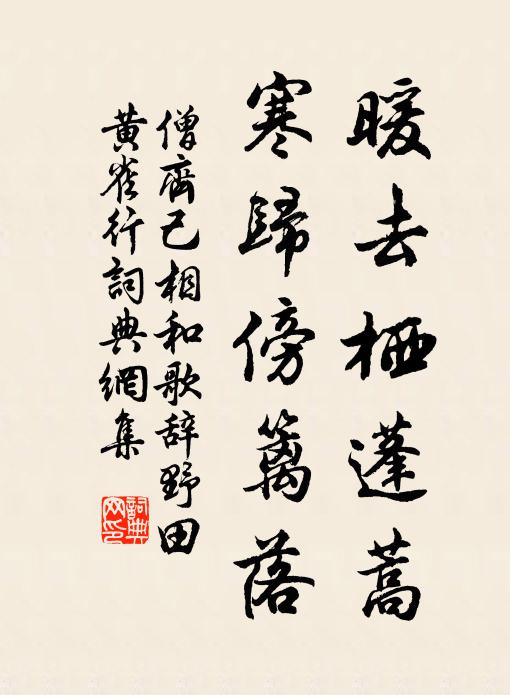 暖去栖蓬蒿
寒歸傍篱落
僧齊己相和歌辞野田
黄雀行詞典網集
詞典网印